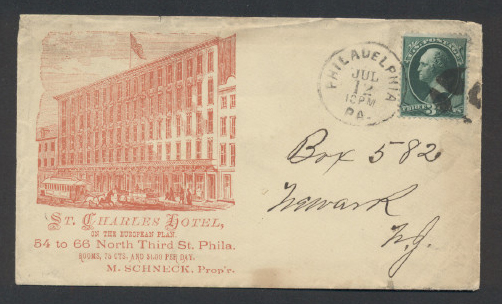 PHILADELPHIA
JUL
12
12PM
PA.
U.S. POSTAGE
THREE 3 CENTS
Box 582
Newark
N.J.
ST. CHARLES HOTEL,
ON THE EUROPEAN PLAN.
54 to 66 North Third St. Phila.
ROOMS, 75 CTS. AND $1.00 PER DAY.
M. SCHNECK, Prop'r.